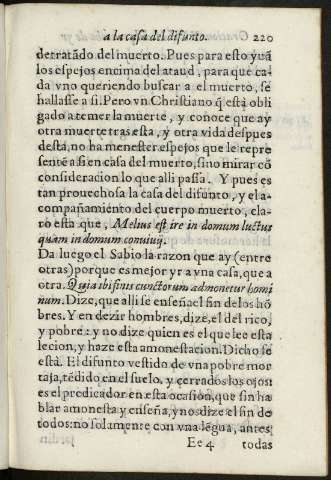 a la casa del difunto. 220
detratãdo del muerto. Pues para esto yuã
los espejos encima del ataud, para que ca-
da vno queriendo buscar a el muerto, se
hallasse a si. Pero vn Christiano q̃ està obli
gado a temer la muerte, y conoce que ay
otra muerte tras esta, y otra vida despues
desta, no ha menester espejos que le repre
senté a si en casa del muerto, sino mirar cõ
consideracion lo que alli passa. Y pues es
tan prouechosa la casa del difunto, y el a-
compañamiento del cuerpo muerto, cla-
ro està que, Melius est ire in domum luctus
quam in domum conuiuij.
Da luego el Sabio la razon que ay (entre
otras) porque es mejor yr a vna casa, que a
otra. Quia ibi finis cunctorum admonetur homi
num. Dize, que alli se enseña el fin de los hõ
bres. Y en dezir hombres, dize, el del rico,
y pobre: y no dize quien es el que lee esta
lecion, y haze esta amonestacion. Dicho se
està. El difunto vestido de vna pobre mor
taja, tẽdido en el suelo, y cerrados los ojos:
es el predicador en esta ocasion, que sin ha
blar amonesta y enseña, y nos dize el fin de
todos: no solamente con vna légua, antes
Ee 4 todas